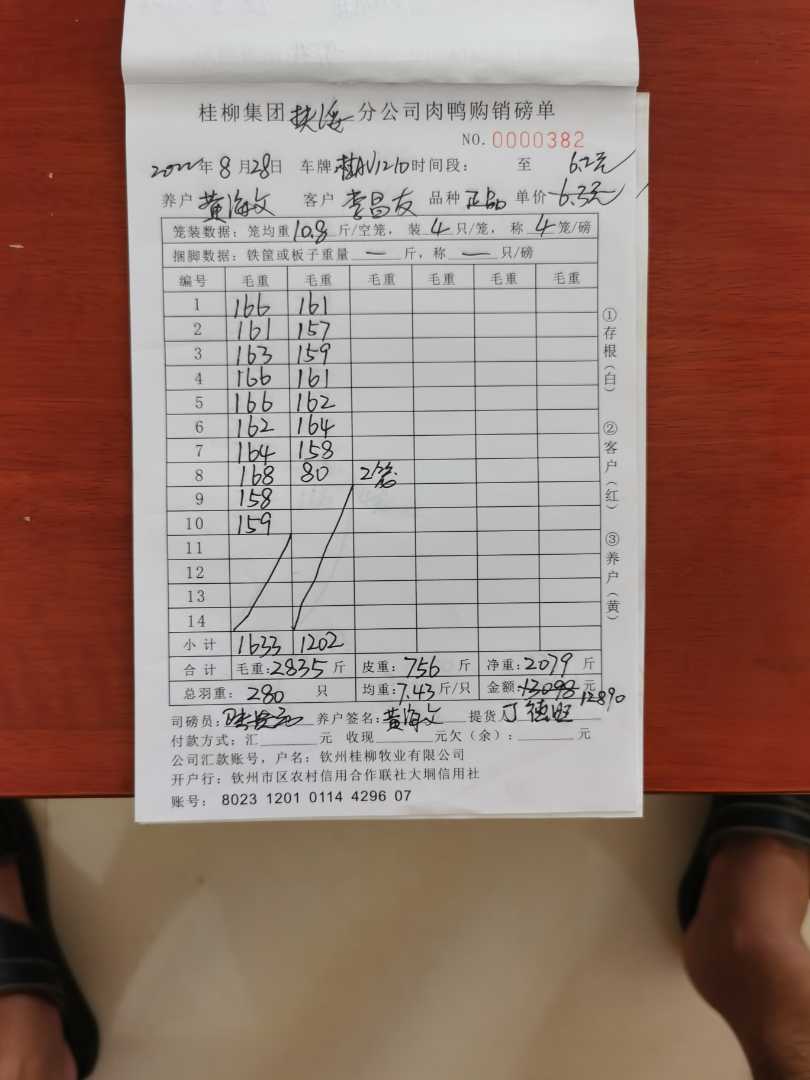 桂柳集团 分公司肉鸭购销磅单
NO. 0000382
2022年8月28日 车牌 桂AV1210 时间段： 至 6.2元
养户 黄海文 客户 李昌友 品种 正品 单价 6.3元
笼装数据：笼均重10.8斤/空笼，装4只/笼，称4笼/磅
捆脚数据：铁筐或板子重量 — 斤，称 — 只/磅
编号 毛重 毛重 毛重 毛重 毛重 毛重
1 166 161
2 161 157
3 163 159
4 166 161
5 166 162
6 162 164
7 164 158
8 168 80 2笼
9 158
10 159
11
12
13
14
小计 1633 1202
合计 毛重：2835斤 皮重：756斤 净重：2079斤
总羽重：280只 均重：7.43斤/只 金额：13098元
12890
司磅员： 养户签名：黄海文 提货人
付款方式：汇 元 收现 元欠（余）： 元
公司汇款账号，户名：钦州桂柳牧业有限公司
开户行：钦州市区农村信用合作联社大垌信用社
账号： 8023 1201 0114 4296 07
①存根（白）
②客户（红）
③养户（黄）